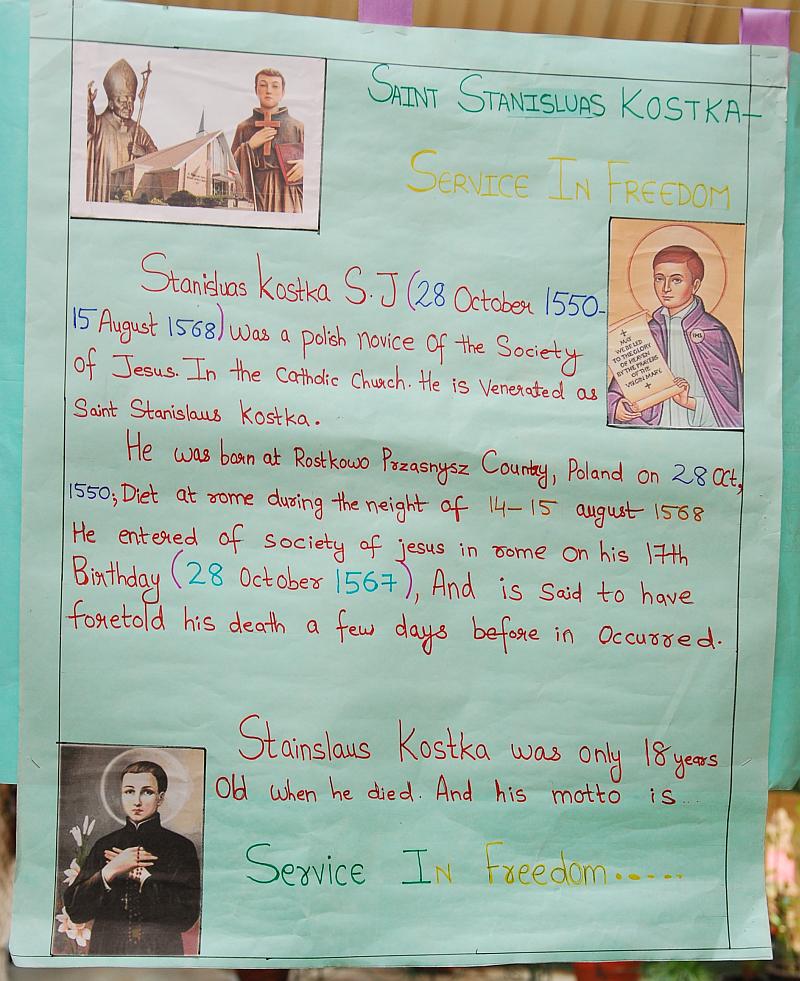 SAINT STANISLUAS KOSTKA-
SERVICE IN FREEDOM
Stanisluas Kostka S.J (28 October 1550-
15 August 1568) was a polish novice of the Society
of Jesus. In the catholic church. He is venerated as
Saint Stanislaus Kostka.
MAY
WE BE LED
TO THE GLORY
OF HEAVEN
BY THE PRAYERS
OF THE
VIRGIN MARY
IHS
He was born at Rostkowo Przasnysz County, Poland on 28 Oct,
1550; Diet at rome during the neight of 14-15 august 1568
He entered of society of jesus in rome on his 17th
Birthday (28 October 1567), And is said to have
foretold his death a few days before in Occurred.
Stainslaus Kostka was only 18 years
Old when he died. And his motto is...
Service In Freedom.....